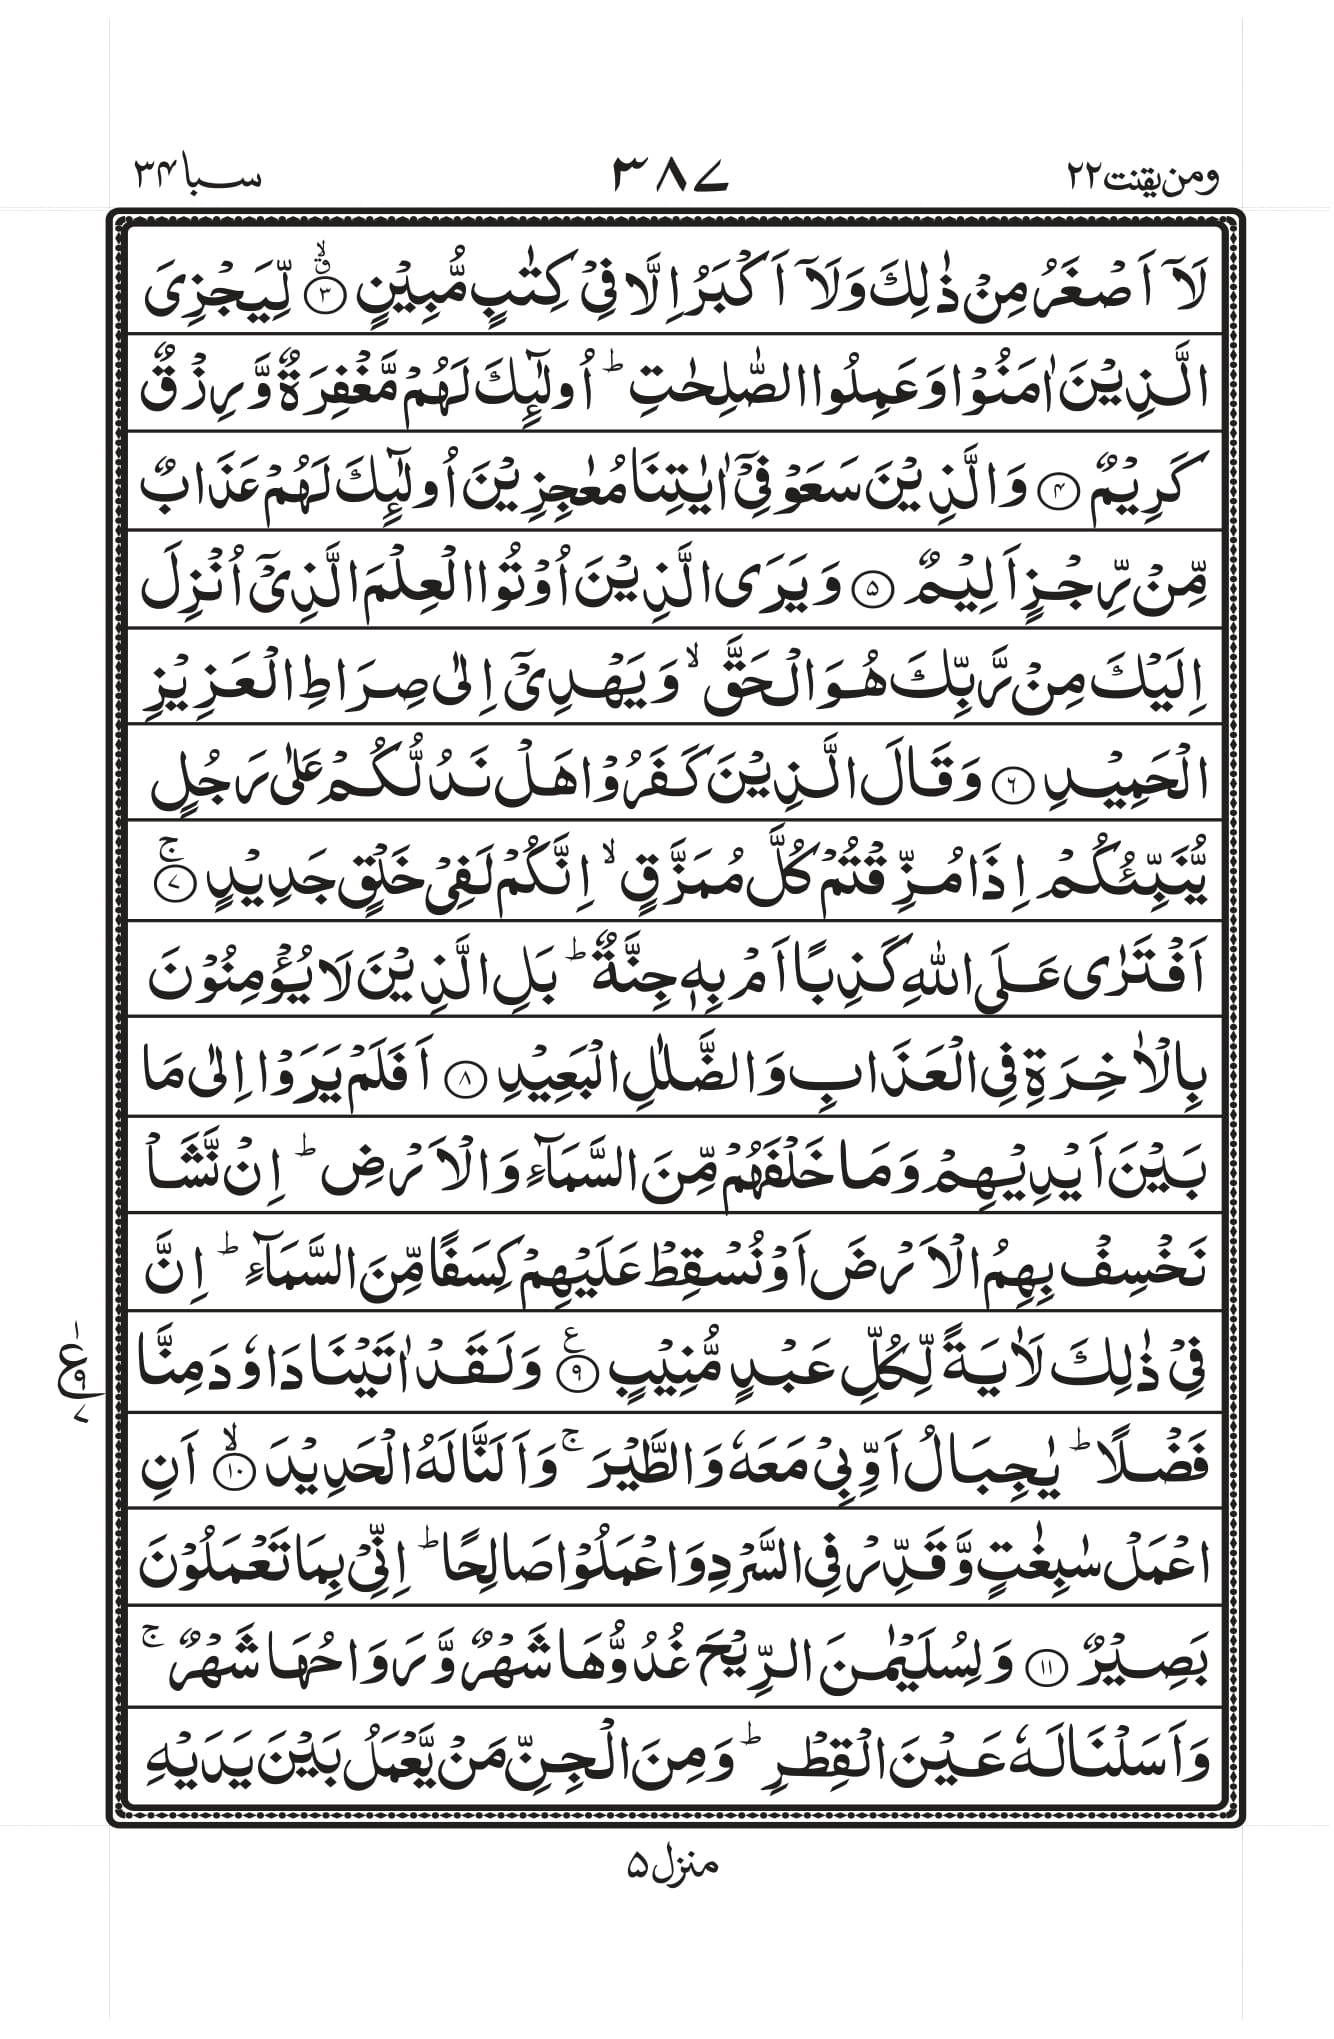 ومن یقنت۲۲
۳۸۷
سبا۳۴
لَاۤ اَصۡغَرُ مِنۡ ذٰلِكَ وَلَاۤ اَكۡبَرُ اِلَّا فِىۡ كِتٰبٍ مُّبِيۡنٍ ۙق ﴿۳﴾ لِّيَجۡزِىَ
الَّذِيۡنَ اٰمَنُوۡا وَعَمِلُوا الصّٰلِحٰتِ ؕ اُولٰٓٮِٕكَ لَهُمۡ مَّغۡفِرَةٌ وَّرِزۡقٌ
كَرِيۡمٌ ﴿۴﴾ وَالَّذِيۡنَ سَعَوۡ فِىۡۤ اٰيٰتِنَا مُعٰجِزِيۡنَ اُولٰٓٮِٕكَ لَهُمۡ عَذَابٌ
مِّنۡ رِّجۡزٍ اَلِيۡمٌ ﴿۵﴾ وَيَرَى الَّذِيۡنَ اُوۡتُوا الۡعِلۡمَ الَّذِىۡۤ اُنۡزِلَ
اِلَيۡكَ مِنۡ رَّبِّكَ هُوَ الۡحَقَّ ۙ وَيَهۡدِىۡۤ اِلٰى صِرَاطِ الۡعَزِيۡزِ
الۡحَمِيۡدِ ﴿۶﴾ وَقَالَ الَّذِيۡنَ كَفَرُوۡا هَلۡ نَدُلُّكُمۡ عَلٰى رَجُلٍ
يُّنَبِّئُكُمۡ اِذَا مُزِّقۡتُمۡ كُلَّ مُمَزَّقٍ ۙ اِنَّكُمۡ لَفِىۡ خَلۡقٍ جَدِيۡدٍ ۚ ﴿۷﴾
اَفۡتَرٰى عَلَى اللّٰهِ كَذِبًا اَمۡ بِهٖ جِنَّةٌ ؕ بَلِ الَّذِيۡنَ لَا يُؤۡمِنُوۡنَ
بِالۡاٰخِرَةِ فِى الۡعَذَابِ وَالضَّلٰلِ الۡبَعِيۡدِ ﴿۸﴾ اَفَلَمۡ يَرَوۡا اِلٰى مَا
بَيۡنَ اَيۡدِيۡهِمۡ وَمَا خَلۡفَهُمۡ مِّنَ السَّمَآءِ وَالۡاَرۡضِ ؕ اِنۡ نَّشَاۡ
نَخۡسِفۡ بِهِمُ الۡاَرۡضَ اَوۡ نُسۡقِطۡ عَلَيۡهِمۡ كِسَفًا مِّنَ السَّمَآءِ ؕ اِنَّ
فِىۡ ذٰلِكَ لَاٰيَةً لِّكُلِّ عَبۡدٍ مُّنِيۡبٍ ﴿۹﴾ ع وَلَقَدۡ اٰتَيۡنَا دَاوٗدَ مِنَّا
ع ۱ ۹ ۷
فَضۡلًا ؕ يٰجِبَالُ اَوِّبِىۡ مَعَهٗ وَالطَّيۡرَ ۚ وَاَلَنَّا لَهُ الۡحَدِيۡدَ ۙ ﴿۱۰﴾ اَنِ
اعۡمَلۡ سٰبِغٰتٍ وَّقَدِّرۡ فِى السَّرۡدِ وَاعۡمَلُوۡا صَالِحًا ؕ اِنِّىۡ بِمَا تَعۡمَلُوۡنَ
بَصِيۡرٌ ﴿۱۱﴾ وَلِسُلَيۡمٰنَ الرِّيۡحَ غُدُوُّهَا شَهۡرٌ وَّرَوَاحُهَا شَهۡرٌ ۚ
وَاَسَلۡنَا لَهٗ عَيۡنَ الۡقِطۡرِ ؕ وَمِنَ الۡجِنِّ مَنۡ يَّعۡمَلُ بَيۡنَ يَدَيۡهِ
منزل۵